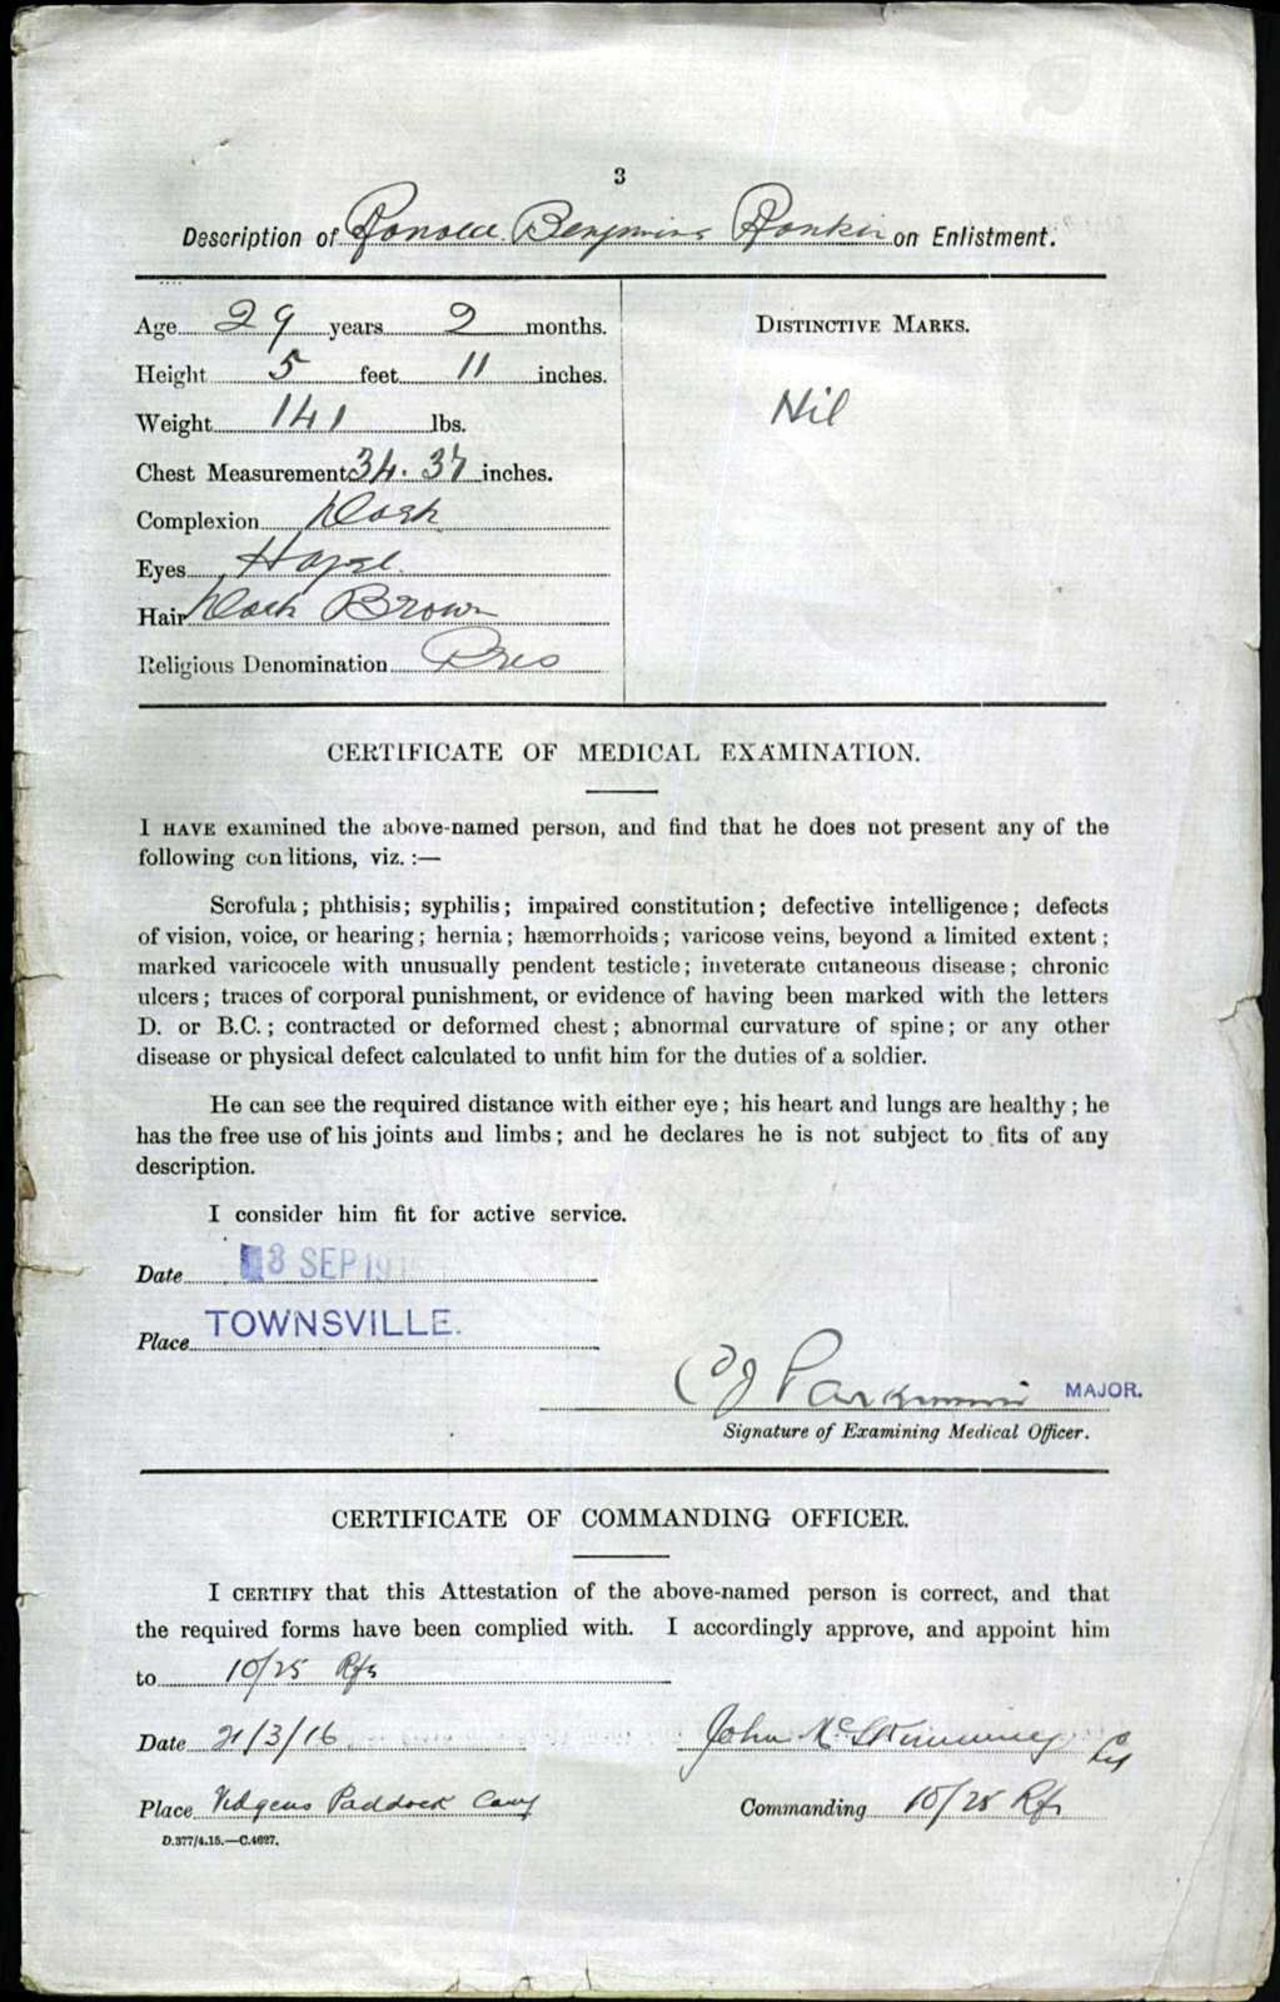 3
Description of Ronald Benjamin Rankin on Enlistment.
Age 29 years 2 months.
Height 5 feet 11 inches.
Weight 141 lbs.
Chest Measurement 34. 37 inches.
Complexion Dark
Eyes Hazel
Hair Dark Brown
Religious Denomination Pres
DISTINCTIVE MARKS.
Nil
CERTIFICATE OF MEDICAL EXAMINATION.
I HAVE examined the above-named person, and find that he does not present any of the
following conditions, viz. :—
Scrofula ; phthisis ; syphilis ; impaired constitution ; defective intelligence ; defects
of vision, voice, or hearing ; hernia ; hæmorrhoids ; varicose veins, beyond a limited extent ;
marked varicocele with unusually pendent testicle ; inveterate cutaneous disease ; chronic
ulcers ; traces of corporal punishment, or evidence of having been marked with the letters
D. or B.C. ; contracted or deformed chest ; abnormal curvature of spine ; or any other
disease or physical defect calculated to unfit him for the duties of a soldier.
He can see the required distance with either eye ; his heart and lungs are healthy ; he
has the free use of his joints and limbs ; and he declares he is not subject to fits of any
description.
I consider him fit for active service.
Date SEP
Place TOWNSVILLE.
MAJOR.
Signature of Examining Medical Officer.
CERTIFICATE OF COMMANDING OFFICER.
I CERTIFY that this Attestation of the above-named person is correct, and that
the required forms have been complied with. I accordingly approve, and appoint him
to 10/25 Rfs
Date 21/3/16 John
Place Paddock Camp Commanding 10/25 Rfs
D.377/4.15.—C.4627.